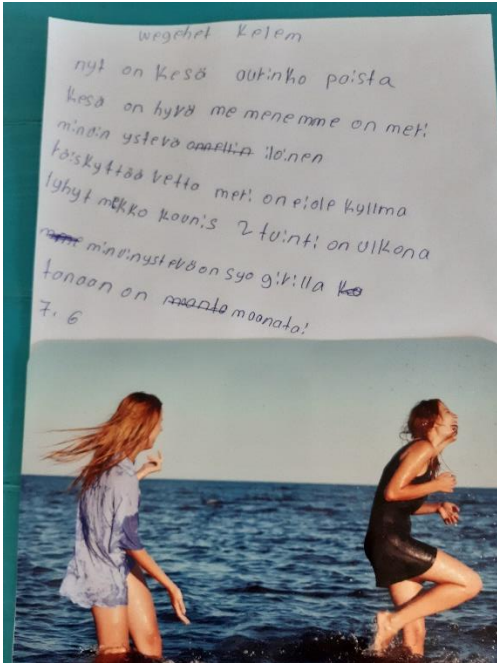 wegehet Kelem
nyt on kesä aurinko paista
kesä on hyvä me menemme on meri
minun ystevä iloinen
täiskyttää vettä meri on eiole kyllma
lyhyt mekko kaunis 2 tuinti on ulkona
minunystevä on syo girilla
tanaan on maanatai
7.6